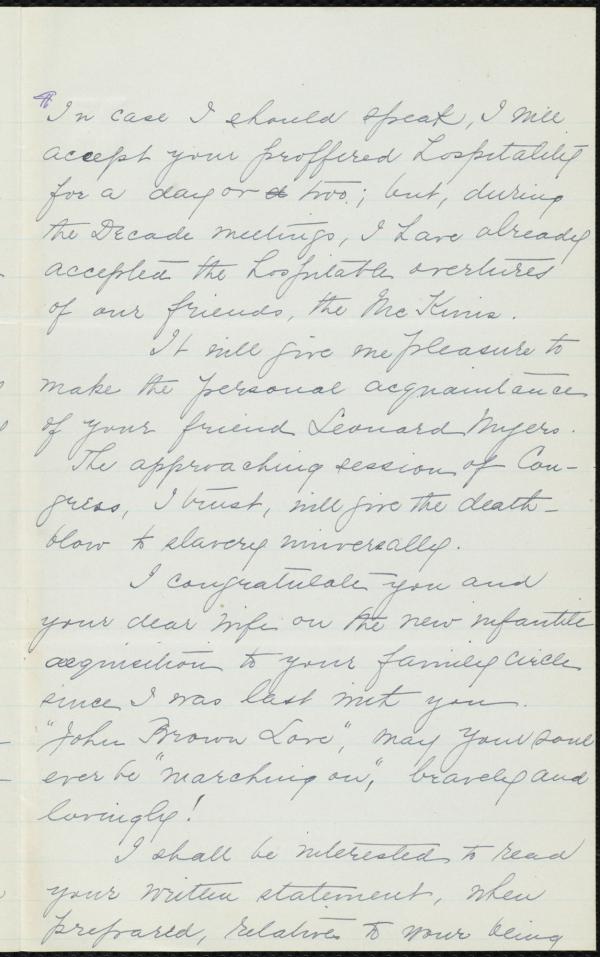 In case I should speak, I will
accept your proffered hospitality
for a day or a two; but, during
the Decade meetings, I have already
accepted the hospitable overtures
of our friends, the McKims.
It will give me pleasure to
make the personal acquaintance
of your friend Leonard Myers.
The approaching session of Con-
gress, I trust, will give the death-
blow to slavery universally.
I congratulate you and
your dear wife on the new infantile
acquisition to your family circle
since I was last with you.
"John Brown Love", may your soul
ever be "marching on", bravely and
lovingly!
I shall be interested to read
your written statement, when
prepared, relative to your being